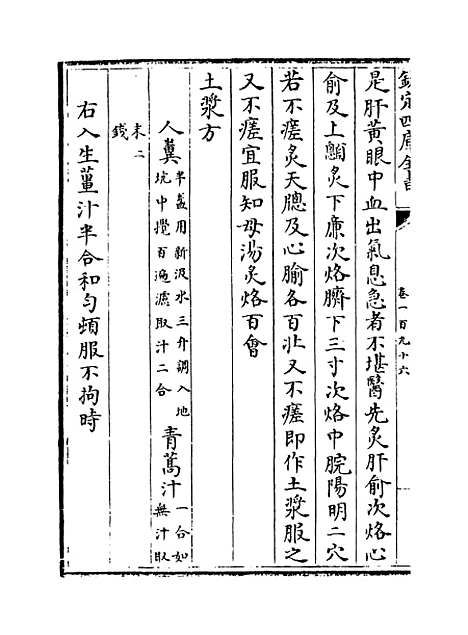 欽定四庫全書
卷一百九十六
是肝黃眼中血出氣息急者不堪醫先炙肝俞次烙心
俞及上顖炙下亷次烙臍下三寸次烙中脘陽明二穴
若不瘥炙天牕及心腧各百壯又不瘥即作土漿服之
又不瘥宜服知母湯炙烙百會
土漿方
人糞半盞用新汲水三升調入地坑中攪百遍濾取汁二合 青蒿汁一合如無汁取
末二錢
右入生薑汁半合和勻頓服不拘時